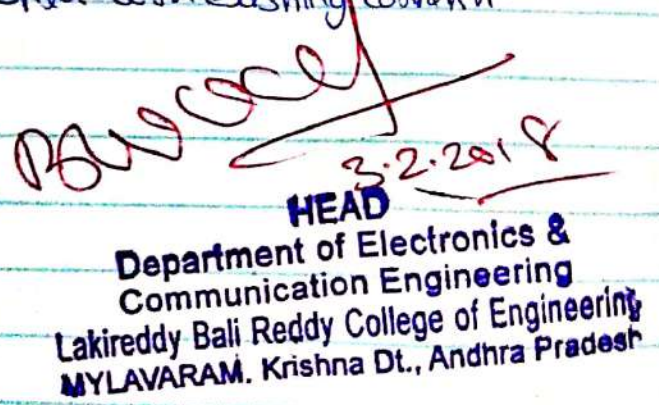 3.2.2018
HEAD
Department of Electronics &
Communication Engineering
Lakireddy Bali Reddy College of Engineering
MYLAVARAM. Krishna Dt., Andhra Pradesh